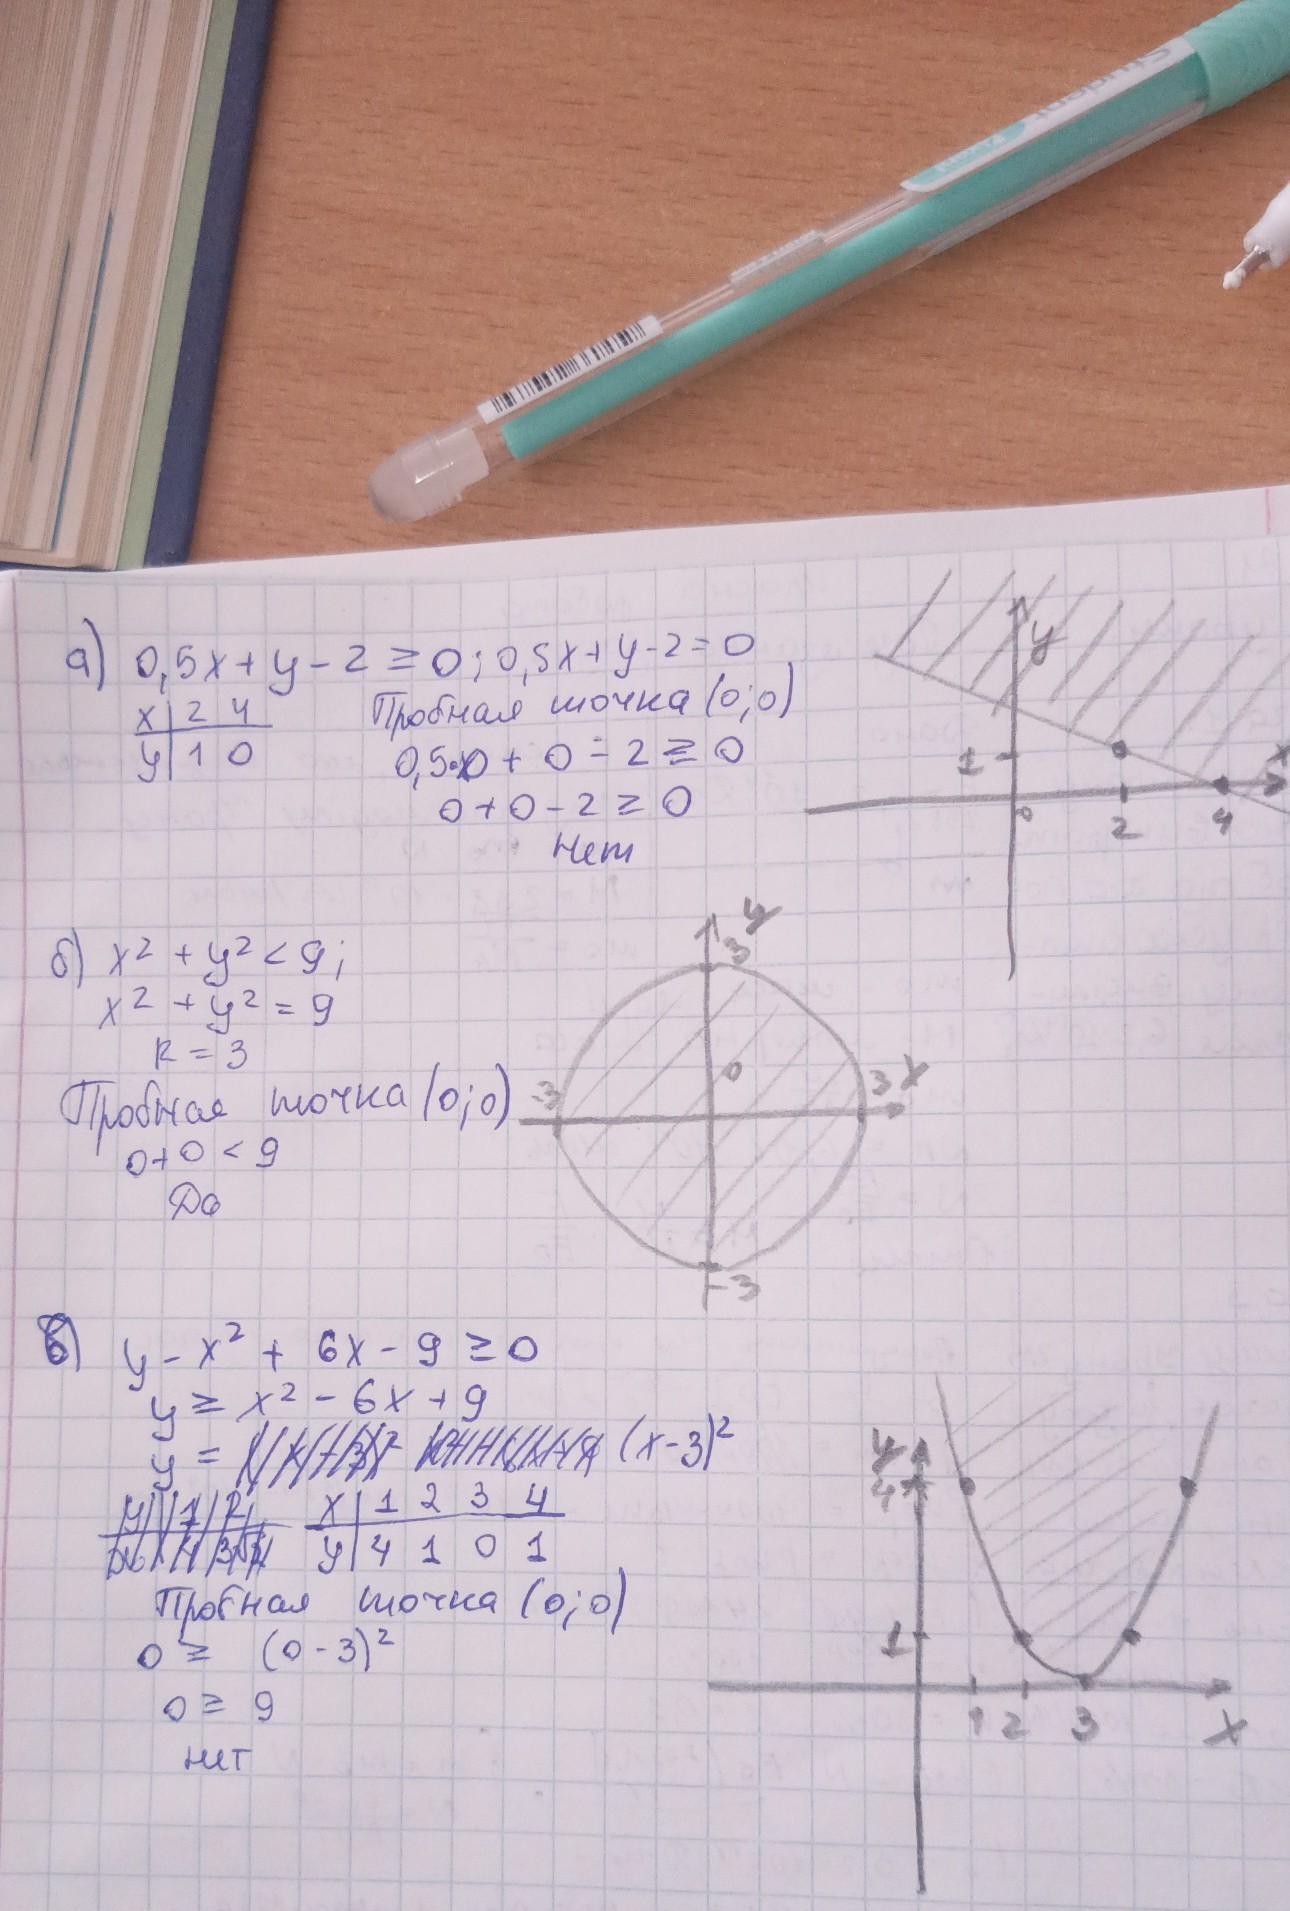 Student
а) 0,5x+y-2≥0; 0,5x+y-2=0
x | 2 4
y | 1 0
Пробная точка (0;0)
0,5·0+0-2≥0
0+0-2≥0
Нет
y
x
1
0
2
4
б) x²+y²<9;
x²+y²=9
R=3
Пробная точка (0;0)
0+0<9
Да
y
3
0
-3
3
x
-3
в) y-x²+6x-9≥0
y≥x²-6x+9
y=(x-3)²
x | 1 2 3 4
y | 4 1 0 1
Пробная точка (0;0)
0≥(0-3)²
0≥9
нет
y
4
1
1 2 3
x